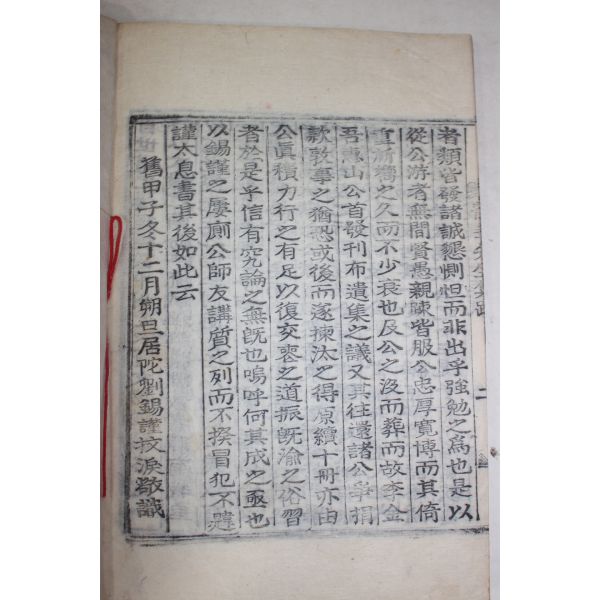 者類皆發諸誠懇惻怛而非出乎強勉之爲也是以
從公游者無間賢愚親疎皆服公忠厚寬博而其倚
重祈嚮之久而不少衰也及公之沒而葬而故李金
吾惠山公首發刊布遺集之議又其往還諸公爭捐
款敦事之猶恐或後而遂揀汰之得原續十冊亦由
公眞積力行之有足以復交喪之道振旣渝之俗習
者於是乎信有究論之無旣也嗚呼何其成之亟也
以錫謹之屢廁公師友講質之列而不揆冒犯不韙
謹太息書其後如此云
舊甲子冬十二月朔旦居陀劉錫謹抆淚敬識
二